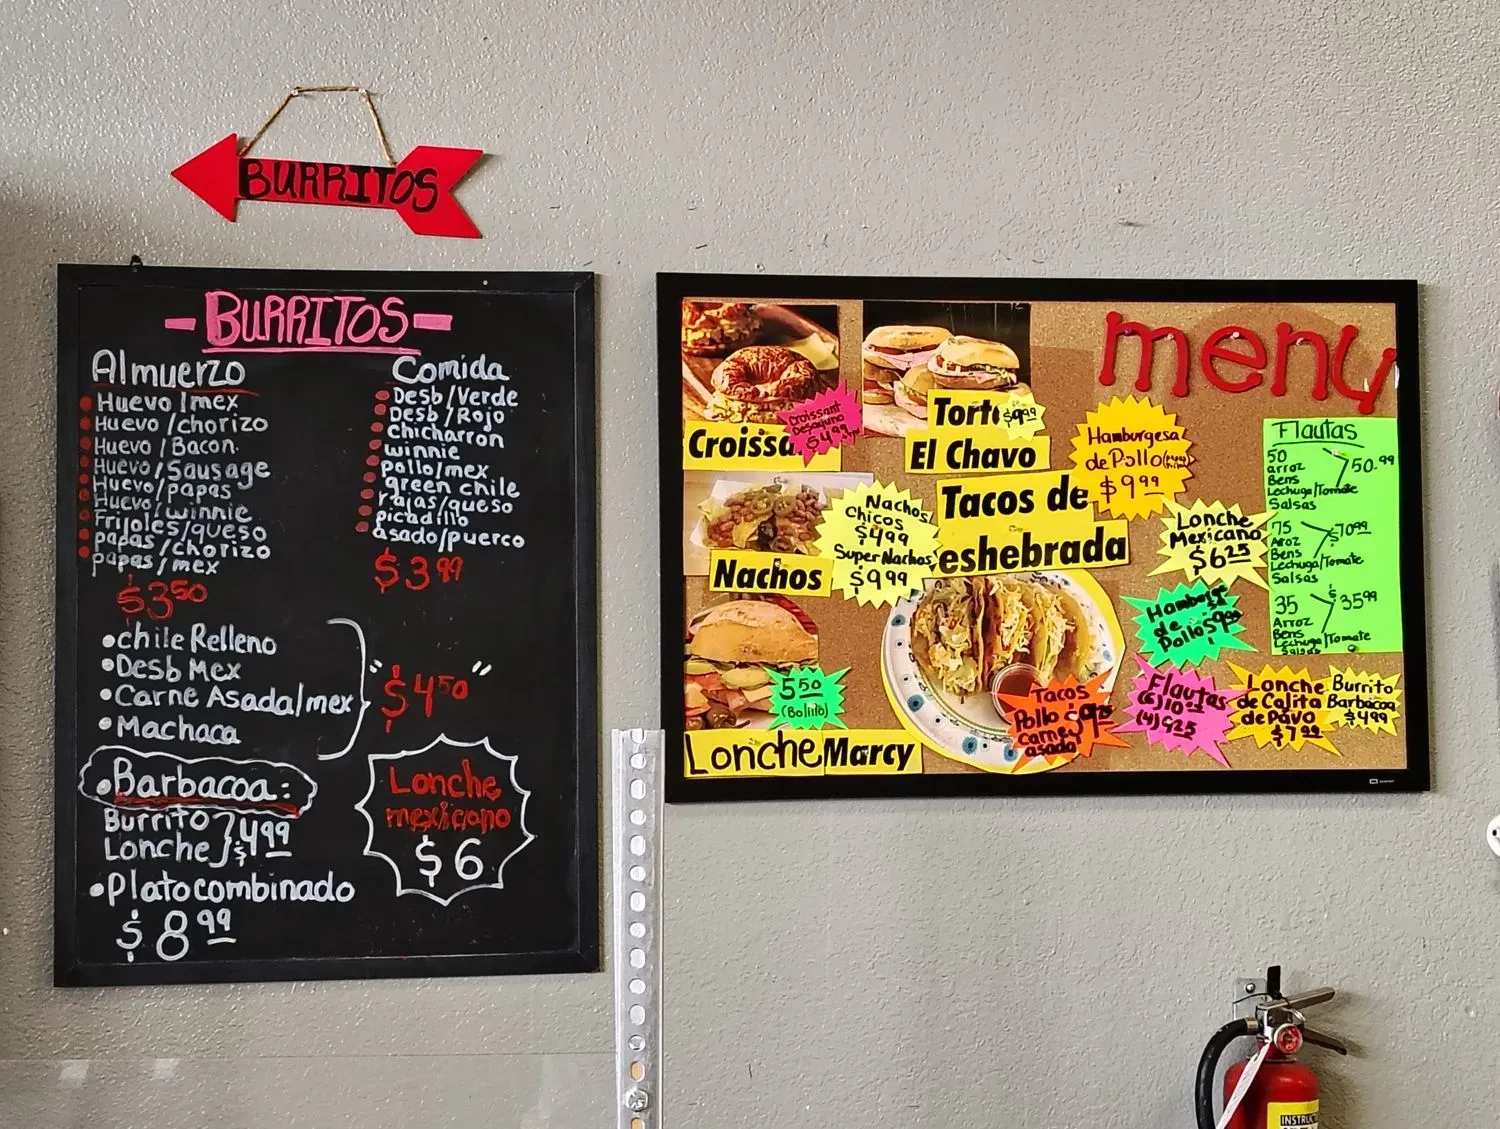 BURRITOS
- BURRITOS -
Almuerzo
Huevo/mex
Huevo/chorizo
Huevo/Bacon.
Huevo/Sausage
Huevo/papas
Huevo/winnie
Frijoles/queso
papas/chorizo
papas/mex
$3.50
Comida
Desb/Verde
Desb/Rojo
chicharron
winnie
pollo/mex
green chile
rajas/queso
picadillo
asado/puerco
$3.99
•chile Relleno
•Desb Mex
•Carne Asada/mex
•Machaca
"$4.50"
•Barbacoa:
Burrito
Lonche
$4.99
•Platocombinado
$8.99
Lonche
mexicano
$6
menu
Croissa
Croissant
Desayuno
$4.99
Torta
$9.99
El Chavo
Hamburgesa
de Pollo
$9.99
Nachos
Nachos
Chicos
$4.99
Super Nachos
$9.99
Tacos de
eshebrada
Lonche
Mexicano
$6.25
Hamburge
de
Pollo $9.99
Flautas
50
arroz
Bens
Lechuga/Tomate
Salsas
50.99
75
Aroz
Bens
Lechuga/Tomate
Salsas
$70.99
35
Arroz
Bens
Lechuga/Tomate
Salsas
$35.99
5.50
(Bolillo)
Lonche Marcy
Tacos
Pollo
carne
asada
Flautas
(4) 9.25
Lonche
de Colita
de Pavo
$7.99
Burrito
Barbacoa
$4.99
INSTRUC